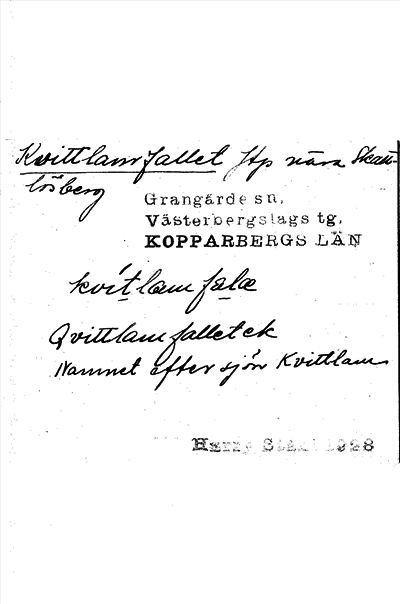 Kvittlamfallet Htp nära Skatt-
lösberg
Grangärde sn,
Västerbergslags tg,
KOPPARBERGS LÄN
kvít lam fala
Qvittlamfallet ek
Namnet efter sjön Kvittlam
Harry Ståhl 1928